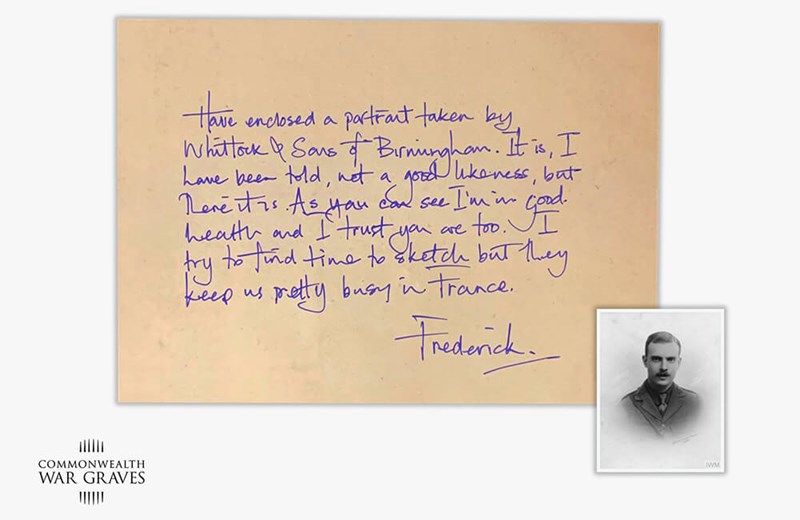 Have enclosed a portrait taken by
Whittock & Sons of Birmingham. It is, I
have been told, not a good likeness, but
there it is. As you can see I'm in good
health and I trust you are too. I
try to find time to sketch but they
keep us pretty busy in France.
Frederick.
COMMONWEALTH
WAR GRAVES
IWM